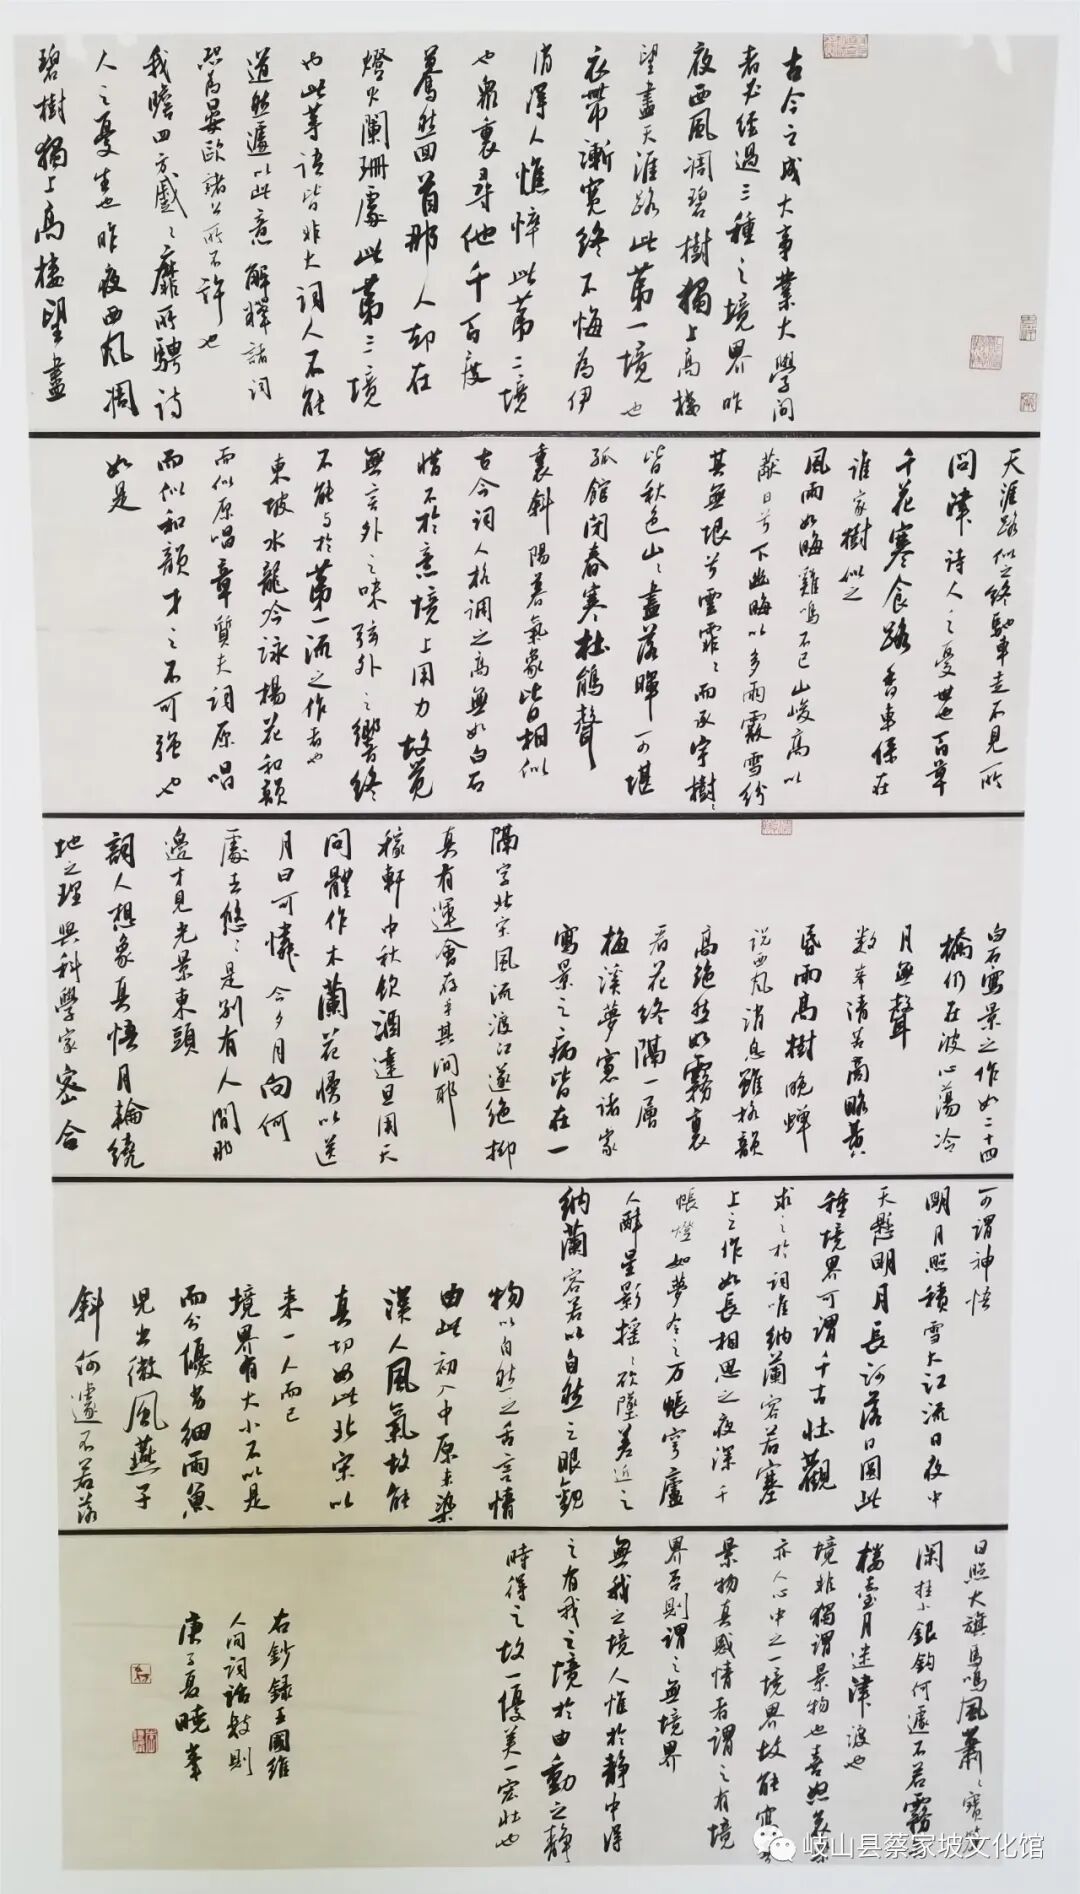 古今之成大事業大學問
者必經過三種之境界昨
夜西風凋碧樹獨上高樓
望盡天涯路此第一境也
衣帶漸寬終不悔為伊
消得人憔悴此第二境
也衆裏尋他千百度
驀然回首那人却在
燈火闌珊處此第三境
也此等語皆非大詞人不能
道然遽以此意解釋諸詞
恐為晏歐諸公所不許也
我瞻四方蹙〻靡所騁詩
人之憂生也昨夜西風凋
碧樹獨上高樓望盡
天涯路似之終日馳車走不見所
問津詩人之憂世也百草
千花寒食路香車係在
誰家樹似之
風雨如晦雞鳴不已山峻高以
蔽日兮下幽晦以多雨霰雪紛
其無垠兮雲霏〻而承宇樹〻
皆秋色山〻盡落暉可堪
孤館閉春寒杜鵑聲
裏斜陽暮氣象皆相似
古今詞人格調之高無如白石
惜不於意境上用力故覺
無言外之味弦外之響終
不能與於第一流之作者也
東坡水龍吟詠楊花和韻
而似原唱章質夫詞原唱
而似和韻才之不可強也
如是
白石寫景之作如二十四
橋仍在波心蕩冷
月無聲
數峯清苦商略黃
昏雨高樹晚蟬
說西風消息雖格韻
高絕然如霧裏
看花終隔一層
梅溪夢窻諸家
寫景之病皆在一
隔字北宋風流渡江遂絕抑
真有運會存乎其間耶
稼軒中秋飲酒達旦用天
問體作木蘭花慢以送
月曰可憐今夕月向何
處去悠〻是別有人間那
邊才見光景東頭
詞人想象真悟月輪繞
地之理與科學家密合
可謂神悟
明月照積雪大江流日夜中
天懸明月長河落日圓此
種境界可謂千古壯觀
求之於詞唯納蘭容若塞
上之作如長相思之夜深千
帳燈如夢令之万帳穹廬
人醉星影搖〻欲墜差近之
納蘭容若以自然之眼觀
物以自然之舌言情
由此初入中原未染
漢人風氣故能
真切如此北宋以
來一人而已
境界有大小不以是
而分優劣細雨魚
兒出微風燕子
斜何遽不若落
日照大旗馬鳴風蕭〻寶簾
閑挂小銀鈎何遽不若霧失
樓臺月迷津渡也
境非獨謂景物也喜怒哀樂
亦人心中之一境界故能寫真
景物真感情者謂之有境
界否則謂之無境界
無我之境人惟於靜中得
之有我之境於由動之靜
時得之故一優美一宏壯也
右鈔錄王國維
人間詞話數則
庚子夏曉峯
岐山县蔡家坡文化馆